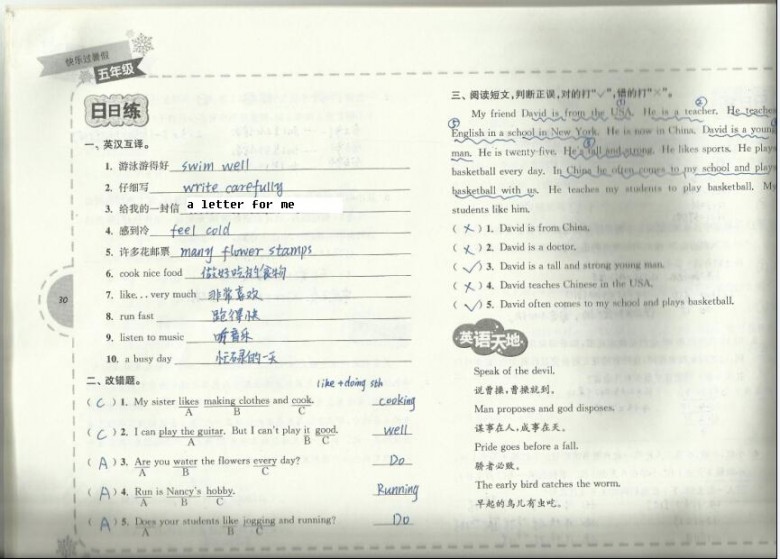 快乐过暑假
五年级
日日练
一、英汉互译。
1. 游泳游得好 swim well
2. 仔细写 write carefully
3. 给我的一封信 a letter for me
4. 感到冷 feel cold
5. 许多花邮票 many flower stamps
6. cook nice food 做好吃的食物
7. like...very much 非常喜欢
8. run fast 跑得快
9. listen to music 听音乐
10. a bosy day 忙碌的一天
二、改错题。
like+doing sth
( C ) 1. My sister likes making clothes and cook. cooking
A B C
( C ) 2. I can play the guitar. But I can't play it good. well
A B C
( A ) 3. Are you water the flowers every day? Do
A B C
( A ) 4. Run is Nancy's hobby. Running
A B C
( A ) 5. Does your students like jogging and running? Do
A B C
30
三、阅读短文,判断正误,对的打“√”,错的打“×”。
My friend David is from the USA. He is a teacher. He teaches
English in a school in New York. He is now in China. David is a young
man. He is twenty-five. He's tall and strong. He likes sports. He plays
basketball every day. In China he often comes to my school and plays
basketball with us. He teaches my students to play basketball. My
students like him.
( × ) 1. David is from China.
( × ) 2. David is a doctor.
( √ ) 3. David is a tall and strong young man.
( × ) 4. David teaches Chinese in the USA.
( √ ) 5. David often comes to my school and plays basketball.
英语天地
Speak of the devil.
说曹操,曹操就到。
Man proposes and god disposes.
谋事在人,成事在天。
Pride goes before a fall.
骄者必败。
The early bird catches the worm.
早起的鸟儿有虫吃。